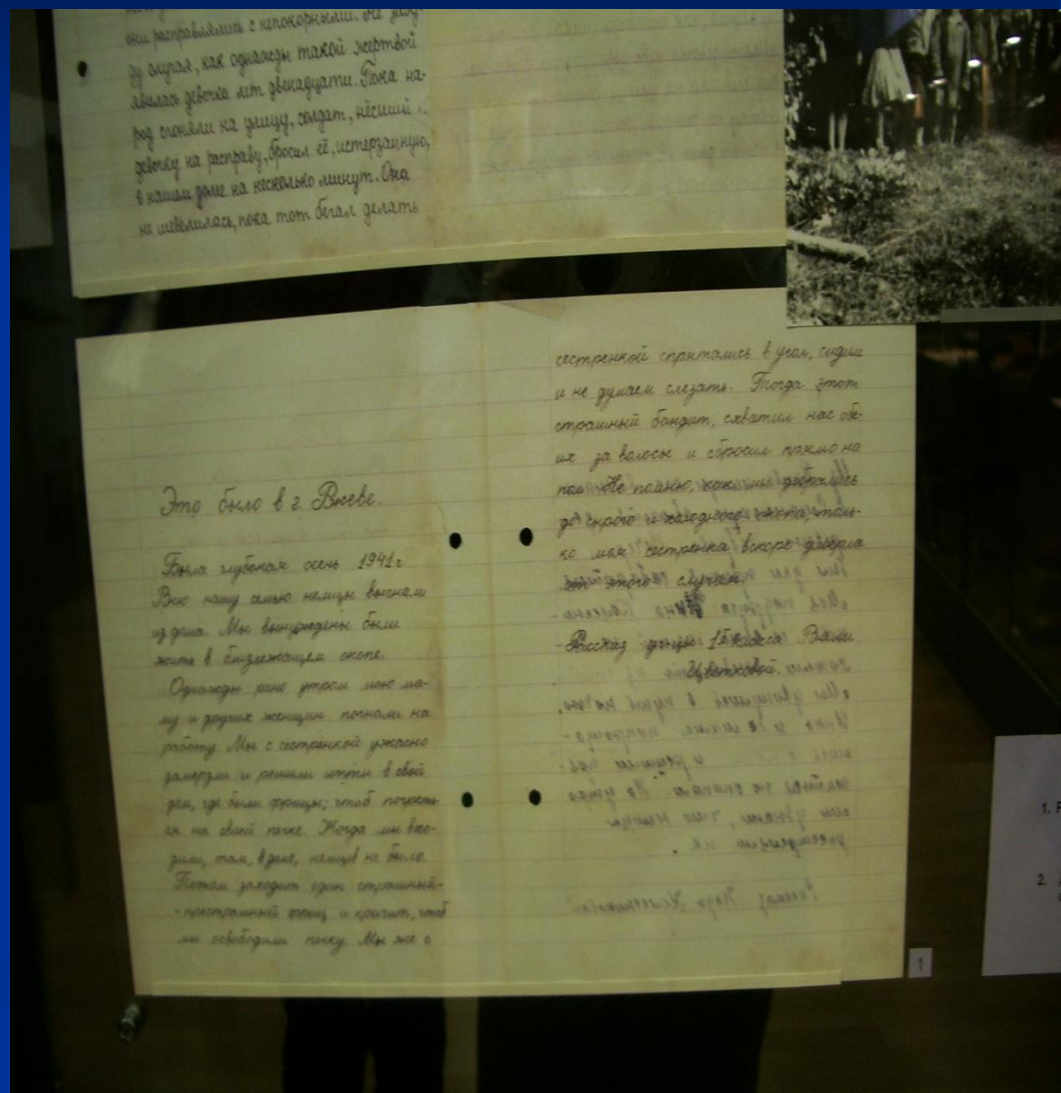 они расправлялись с непокорными. Не забу-
ду случая, как однажды такой жертвой
явилась девочка лет двенадцати. Пока на-
род сгоняли на улицу, солдат, нёсший
девочку на расправу, бросил её, истерзанную,
в нашем доме на несколько минут. Она
не шевелилась, пока тот бегал делать
Это было в г. Ржеве.
Была глубокая осень 1941 г.
Всю нашу семью немцы выгнали
из дома. Мы вынуждены были
жить в близлежащем окопе.
Однажды рано утром мою ма-
му и других женщин погнали на
работу. Мы с сестренкой ужасно
замерзли и решили итти в свой
дом, где были фрицы; чтоб погреть-
ся на своей печке. Когда мы вхо-
дили, там, в доме, немцев не было.
Потом заходит один страшный-
-престрашный фриц и кричит, чтоб
мы освободили печку. Мы же с
сестренкой спрятались в угол, сидим
и не думаем слезать. Тогда этот
страшный бандит, схватил нас обе-
их за волосы и сбросил прямо на
пол. Не помню, как мы добрались
до сырого и холодного окопа, толь-
ко моя сестренка вскоре умерла
от этого случая.
Рассказ уч-цы класса Вали
Цветковой.
1
1.
2.